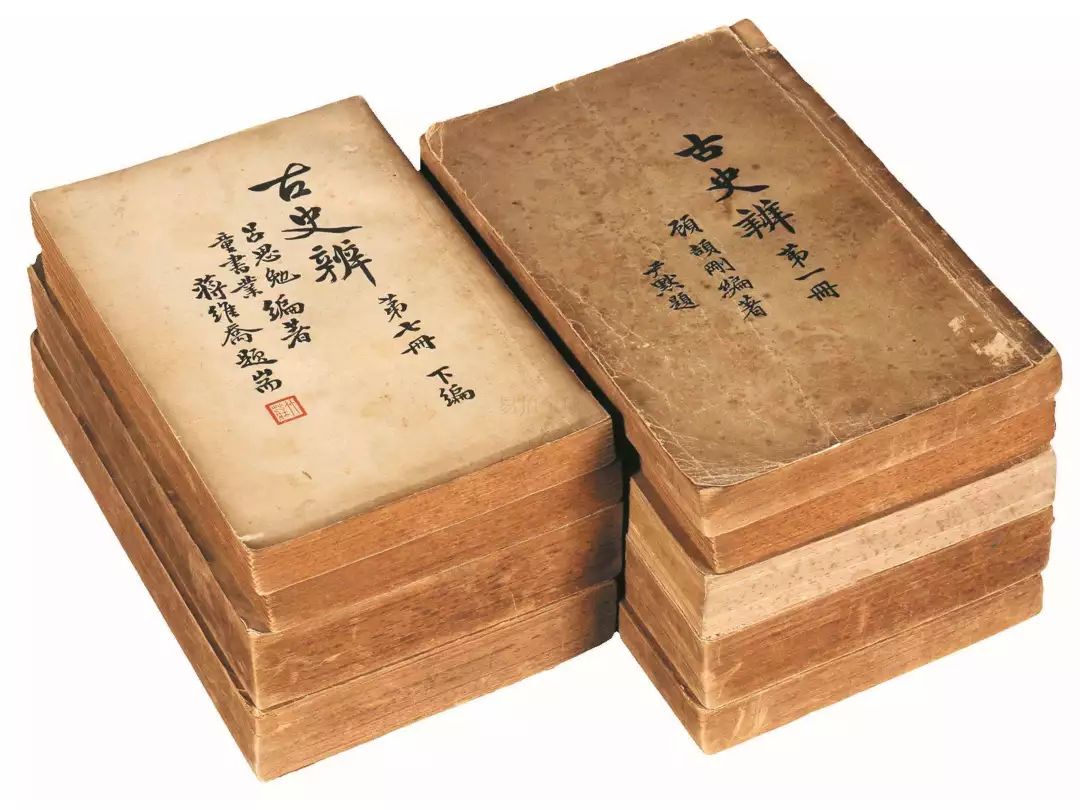 古史辨
第一冊
顧頡剛編著
尹默題
古史辨
第七冊 下編
呂思勉
童書業
編著
蔣維喬題耑